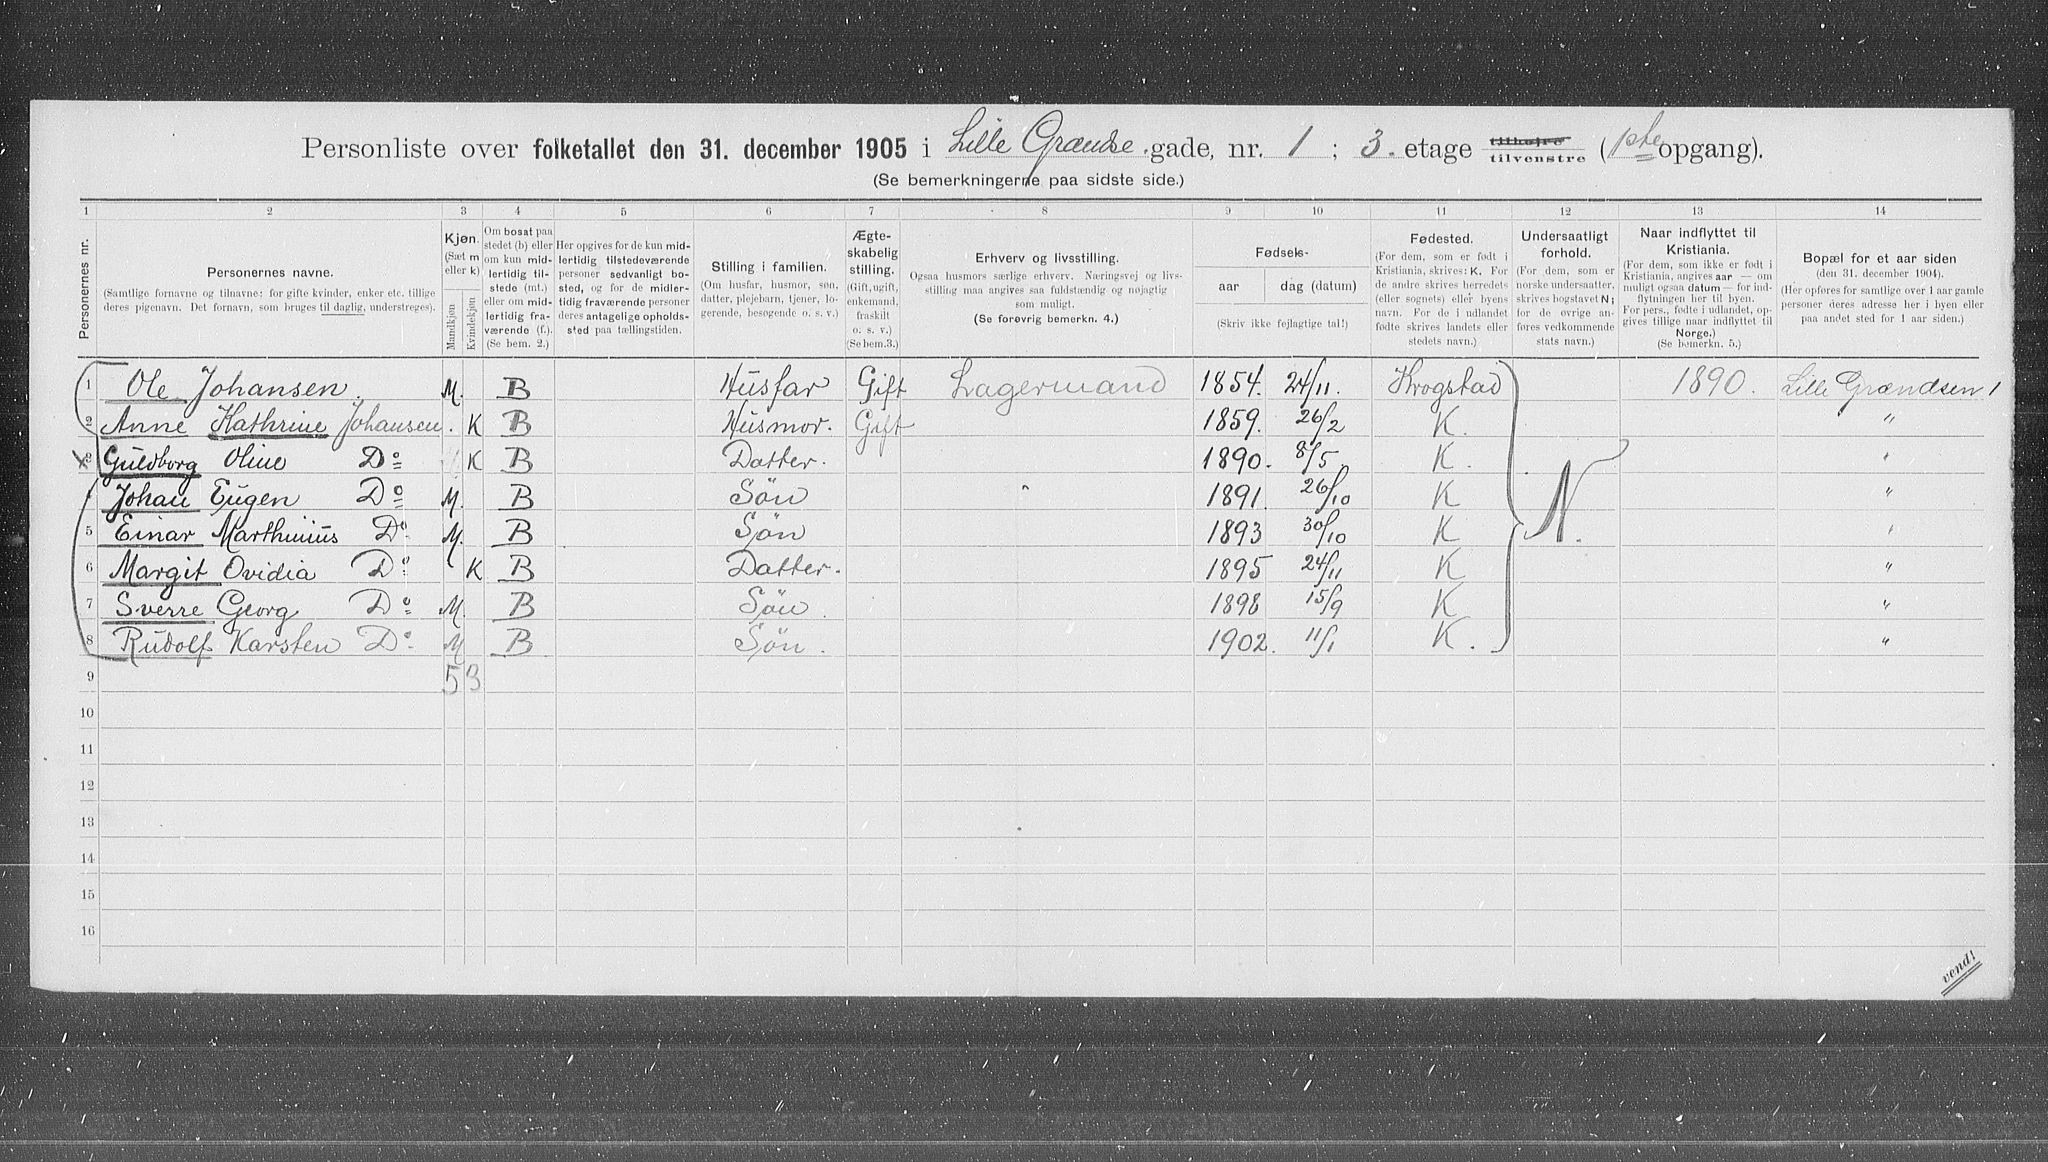 Personliste over folketallet den 31. december 1905 i Lille Grændse gade, nr. 1 ; 3. etage tilhøjre tilvenstre (1ste opgang).
(Se bemerkningerne paa sidste side.)
1 2 3 4 5 6 7 8 9 10 11 12 13 14
Personernes nr.
Personernes navne.
(Samtlige fornavne og tilnavne; for gifte kvinder, enker etc. tillige deres pigenavn. Det fornavn, som bruges til daglig, understreges).
Kjøn.
(Sæt m eller k)
Mandkjøn
Kvindekjøn
Om bosat paa stedet (b) eller om kun midlertidig tilstede (mt.) eller om midlertidig fraværende (f.).
(Se bem. 2.)
Her opgives for de kun midlertidig tilstedeværende personer sedvanligt bosted, og for de midlertidig fraværende personer deres antagelige opholdssted paa tællingstiden.
Stilling i familien.
(Om husfar, husmor, søn, datter, plejebarn, tjener, logerende, besøgende o. s. v.)
Ægteskabelig stilling.
(Gift, ugift, enkemand, fraskilt o. s. v.)
(Se bem.3.)
Erhverv og livsstilling.
Ogsaa husmors særlige erhverv. Næringsvej og livsstilling maa angives saa fuldstændig og nøjagtig som muligt.
(Se forøvrig bemerkn. 4.)
Fødsels-
aar
dag (datum)
(Skriv ikke fejlagtige tal!)
Fødested.
(For dem, som er født i Kristiania, skrives: K. For de andre skrives herredets (eller sognets) eller byens navn. For de i udlandet fødte skrives landets eller stedets navn.)
Undersaatligt forhold.
(For dem, som er norske undersaatter, skrives bogstavet N; for de øvrige anføres vedkommende stats navn.)
Naar indflyttet til Kristiania.
(For dem, som ikke er født i Kristiania, angives aar — om muligt ogsaa datum — for indflytningen her til byen. For pers., fødte i udlandet, opgives tillige naar indflyttet til Norge.)
(Se bemerkn. 5.)
Bopæl for et aar siden
(den 31. december 1904).
(Her opføres for samtlige over 1 aar gamle personer deres adresse her i byen eller paa andet sted for 1 aar siden.)
1 Ole Johansen. M. B Husfar Gift Lagermand 1854. 24/11. Krogstad 1890. Lille Grændsen 1
2 Anne Kathrine Johansen. K B Husmor. Gift 1859. 26/2 K. "
3 Guldborg Oline Do K B Datter. 1890. 8/5. K. "
4 Johan Eugen Do M. B Søn 1891. 26/10 K "
5 Einar Marthinius Do M. B Søn 1893 30/10 K N. "
6 Margit Ovidia Do K B Datter. 1895 24/11 K "
7 Sverre Georg Do M. B Søn 1898 15/9 K "
8 Rudolf Karsten Do M B Søn. 1902. 11/1 K. "
9 5 3
10
11
12
13
14
15
16
vend!